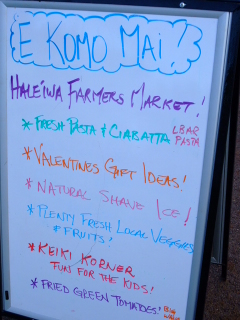 E KOMO MAI!!
HALE'IWA FARMERS MARKET!
* FRESH PASTA & CIABATTA LBAR PASTA
* VALENTINES GIFT IDEAS!
* NATURAL SHAVE ICE!
* PLENTY FRESH LOCAL VEGGIES
& FRUITS!
* KEIKI KORNER
FUN FOR THE KIDS!
* FRIED GREEN TOMATOES!